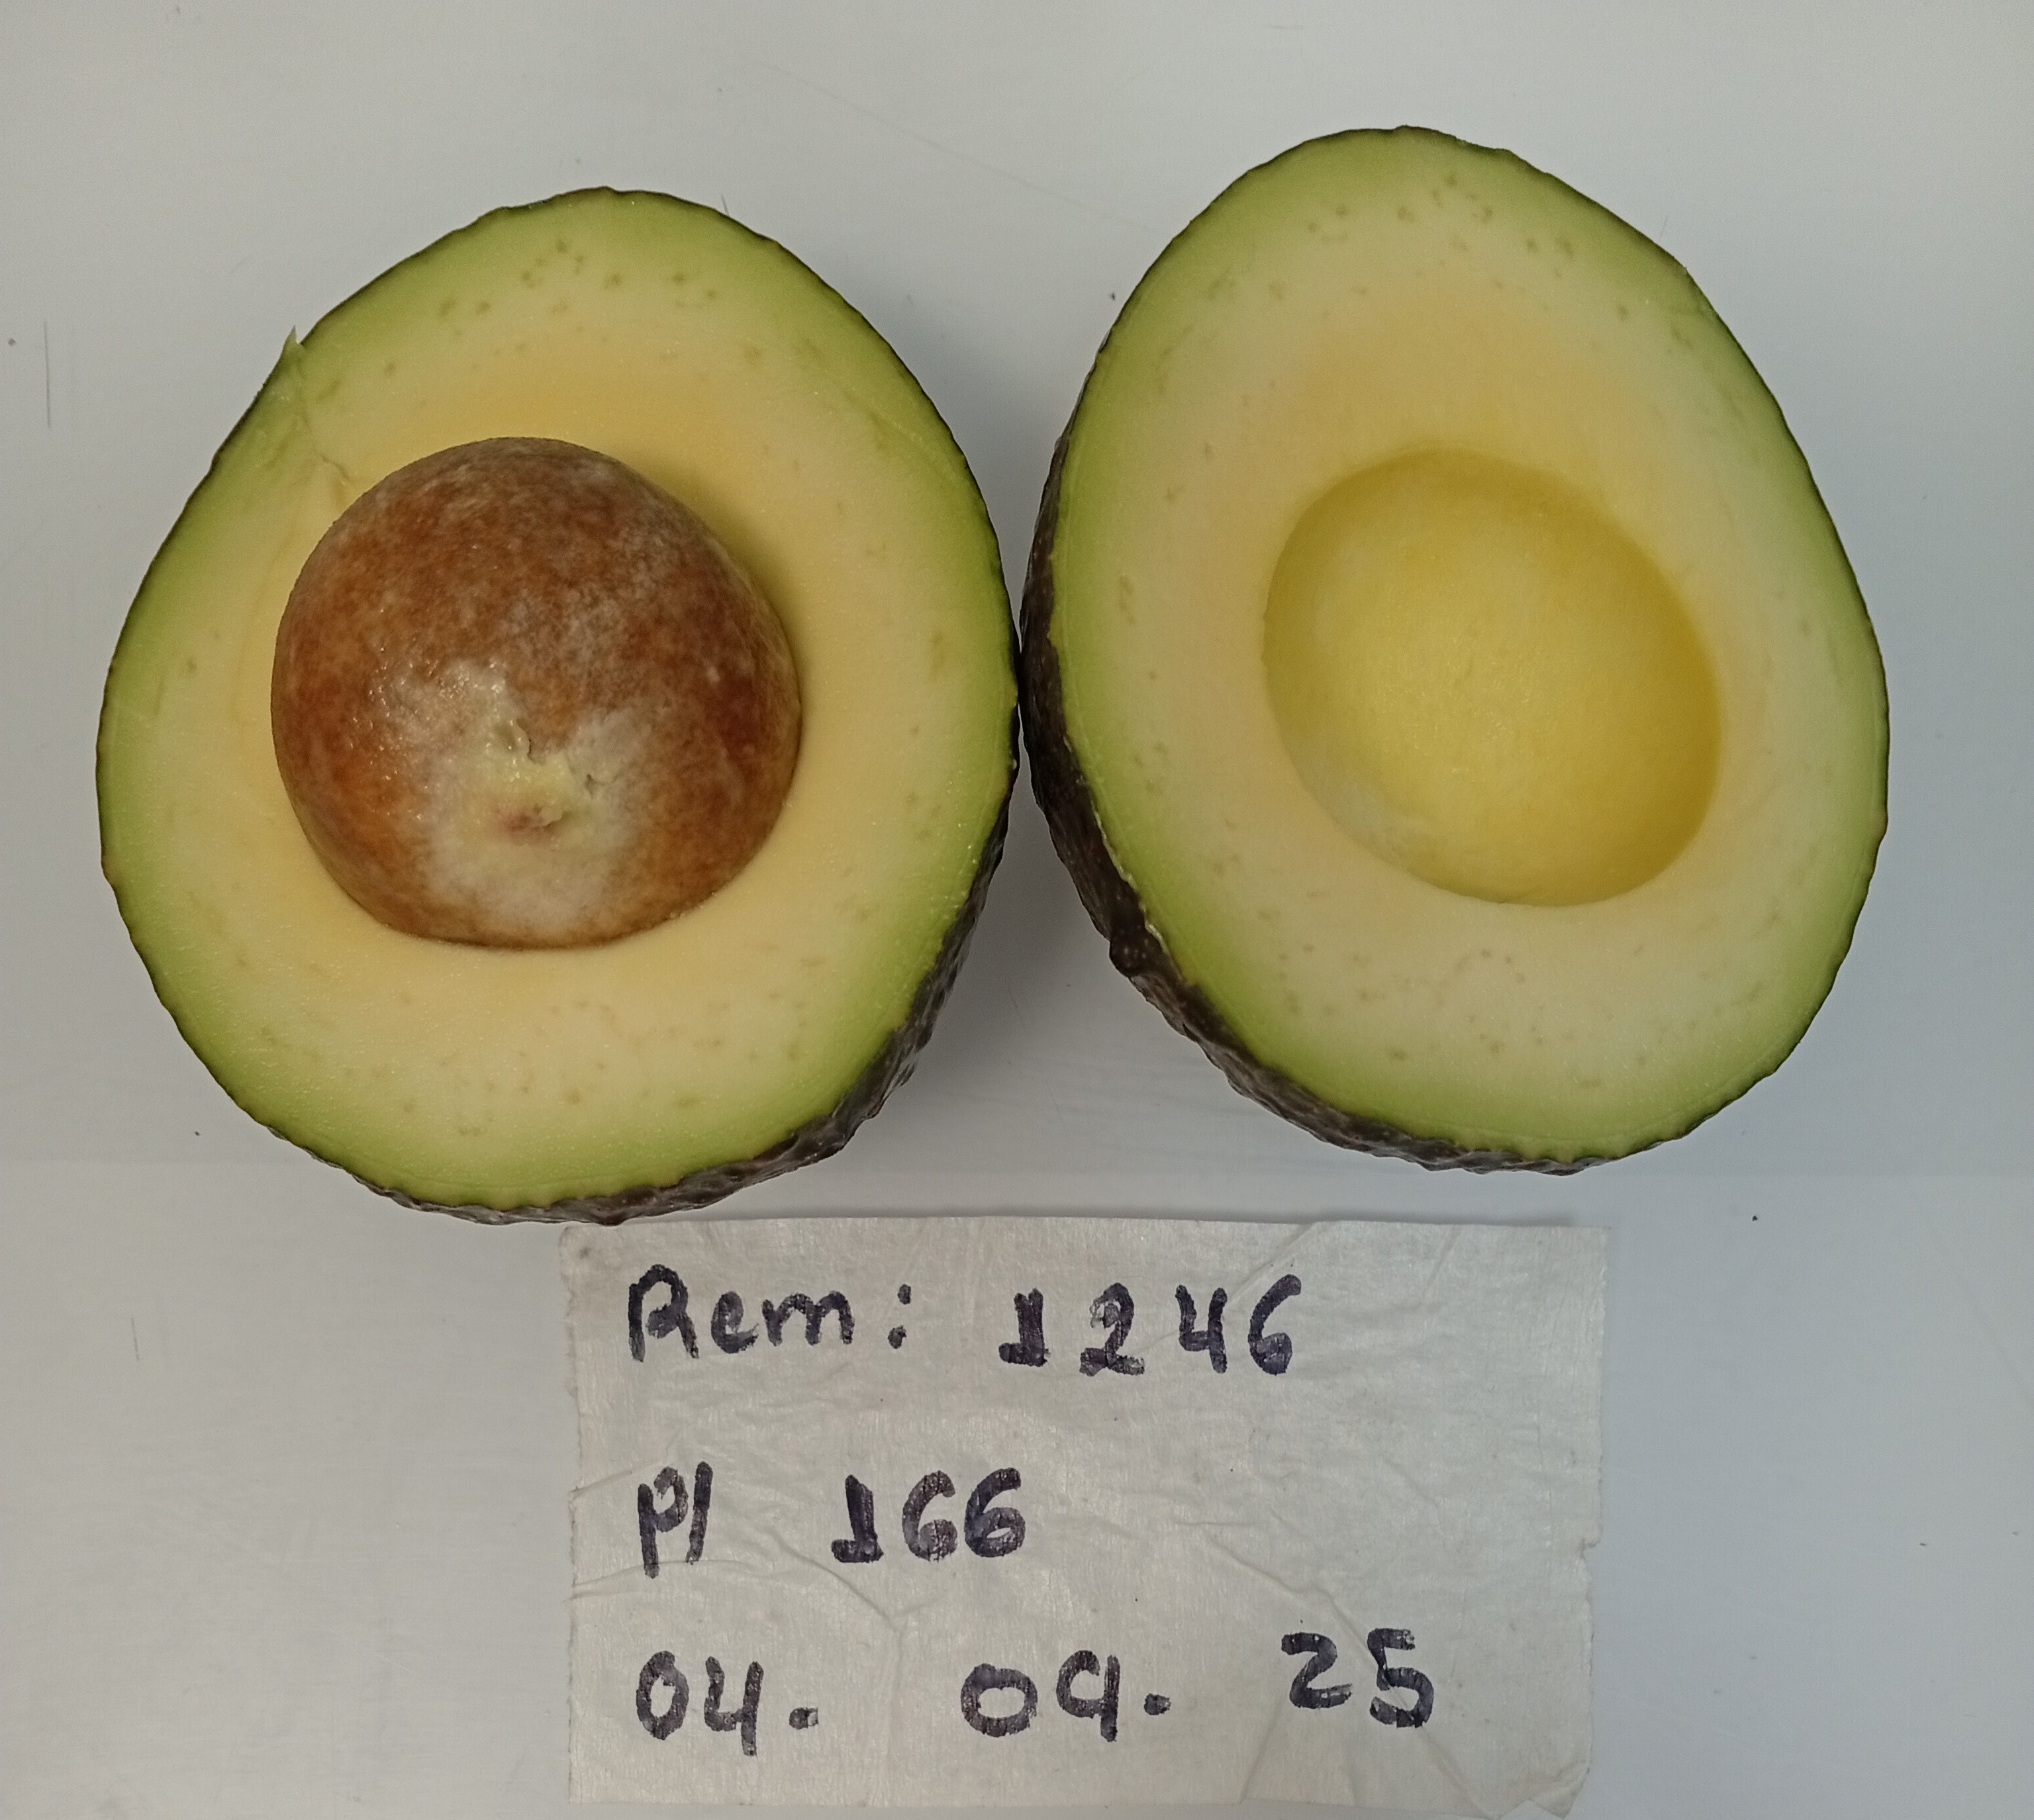 Rem: 1246
Pl 166
04. 09. 25